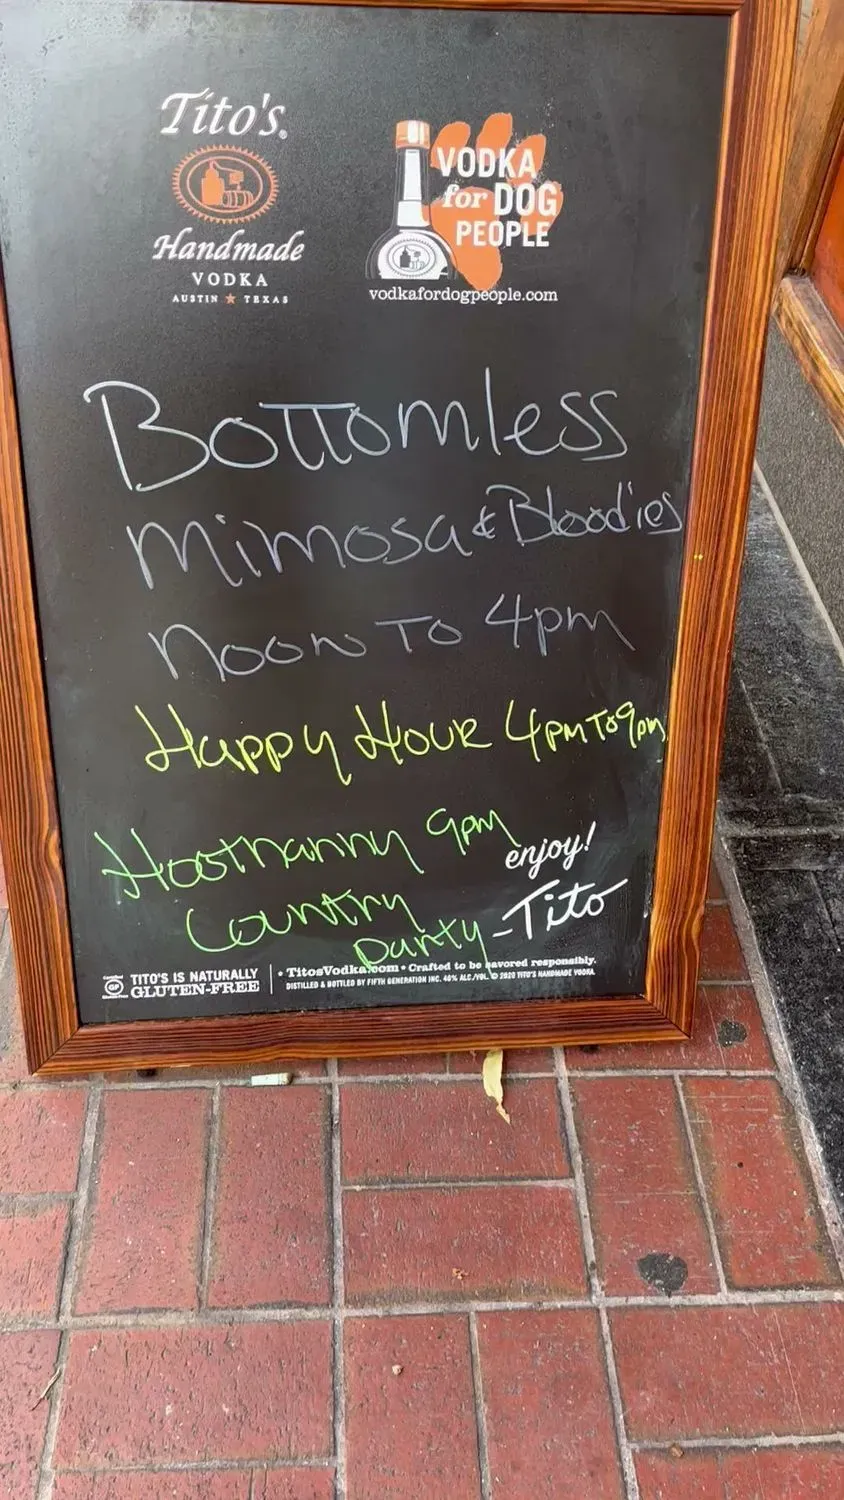 Tito's®
Handmade
VODKA
AUSTIN ★ TEXAS
VODKA
for DOG
PEOPLE
vodkafordogpeople.com
Bottomless
mimosa & Bloodies
Noon To 4pm
Happy Hour 4pm To 9pm
Hootnanny 9pm
Country
party
enjoy!
-Tito
Certified
GF
Gluten-Free
TITO'S IS NATURALLY
GLUTEN-FREE
• TitosVodka.com • Crafted to be savored responsibly.
DISTILLED & BOTTLED BY FIFTH GENERATION INC. 40% ALC./VOL. © 2020 TITO'S HANDMADE VODKA.